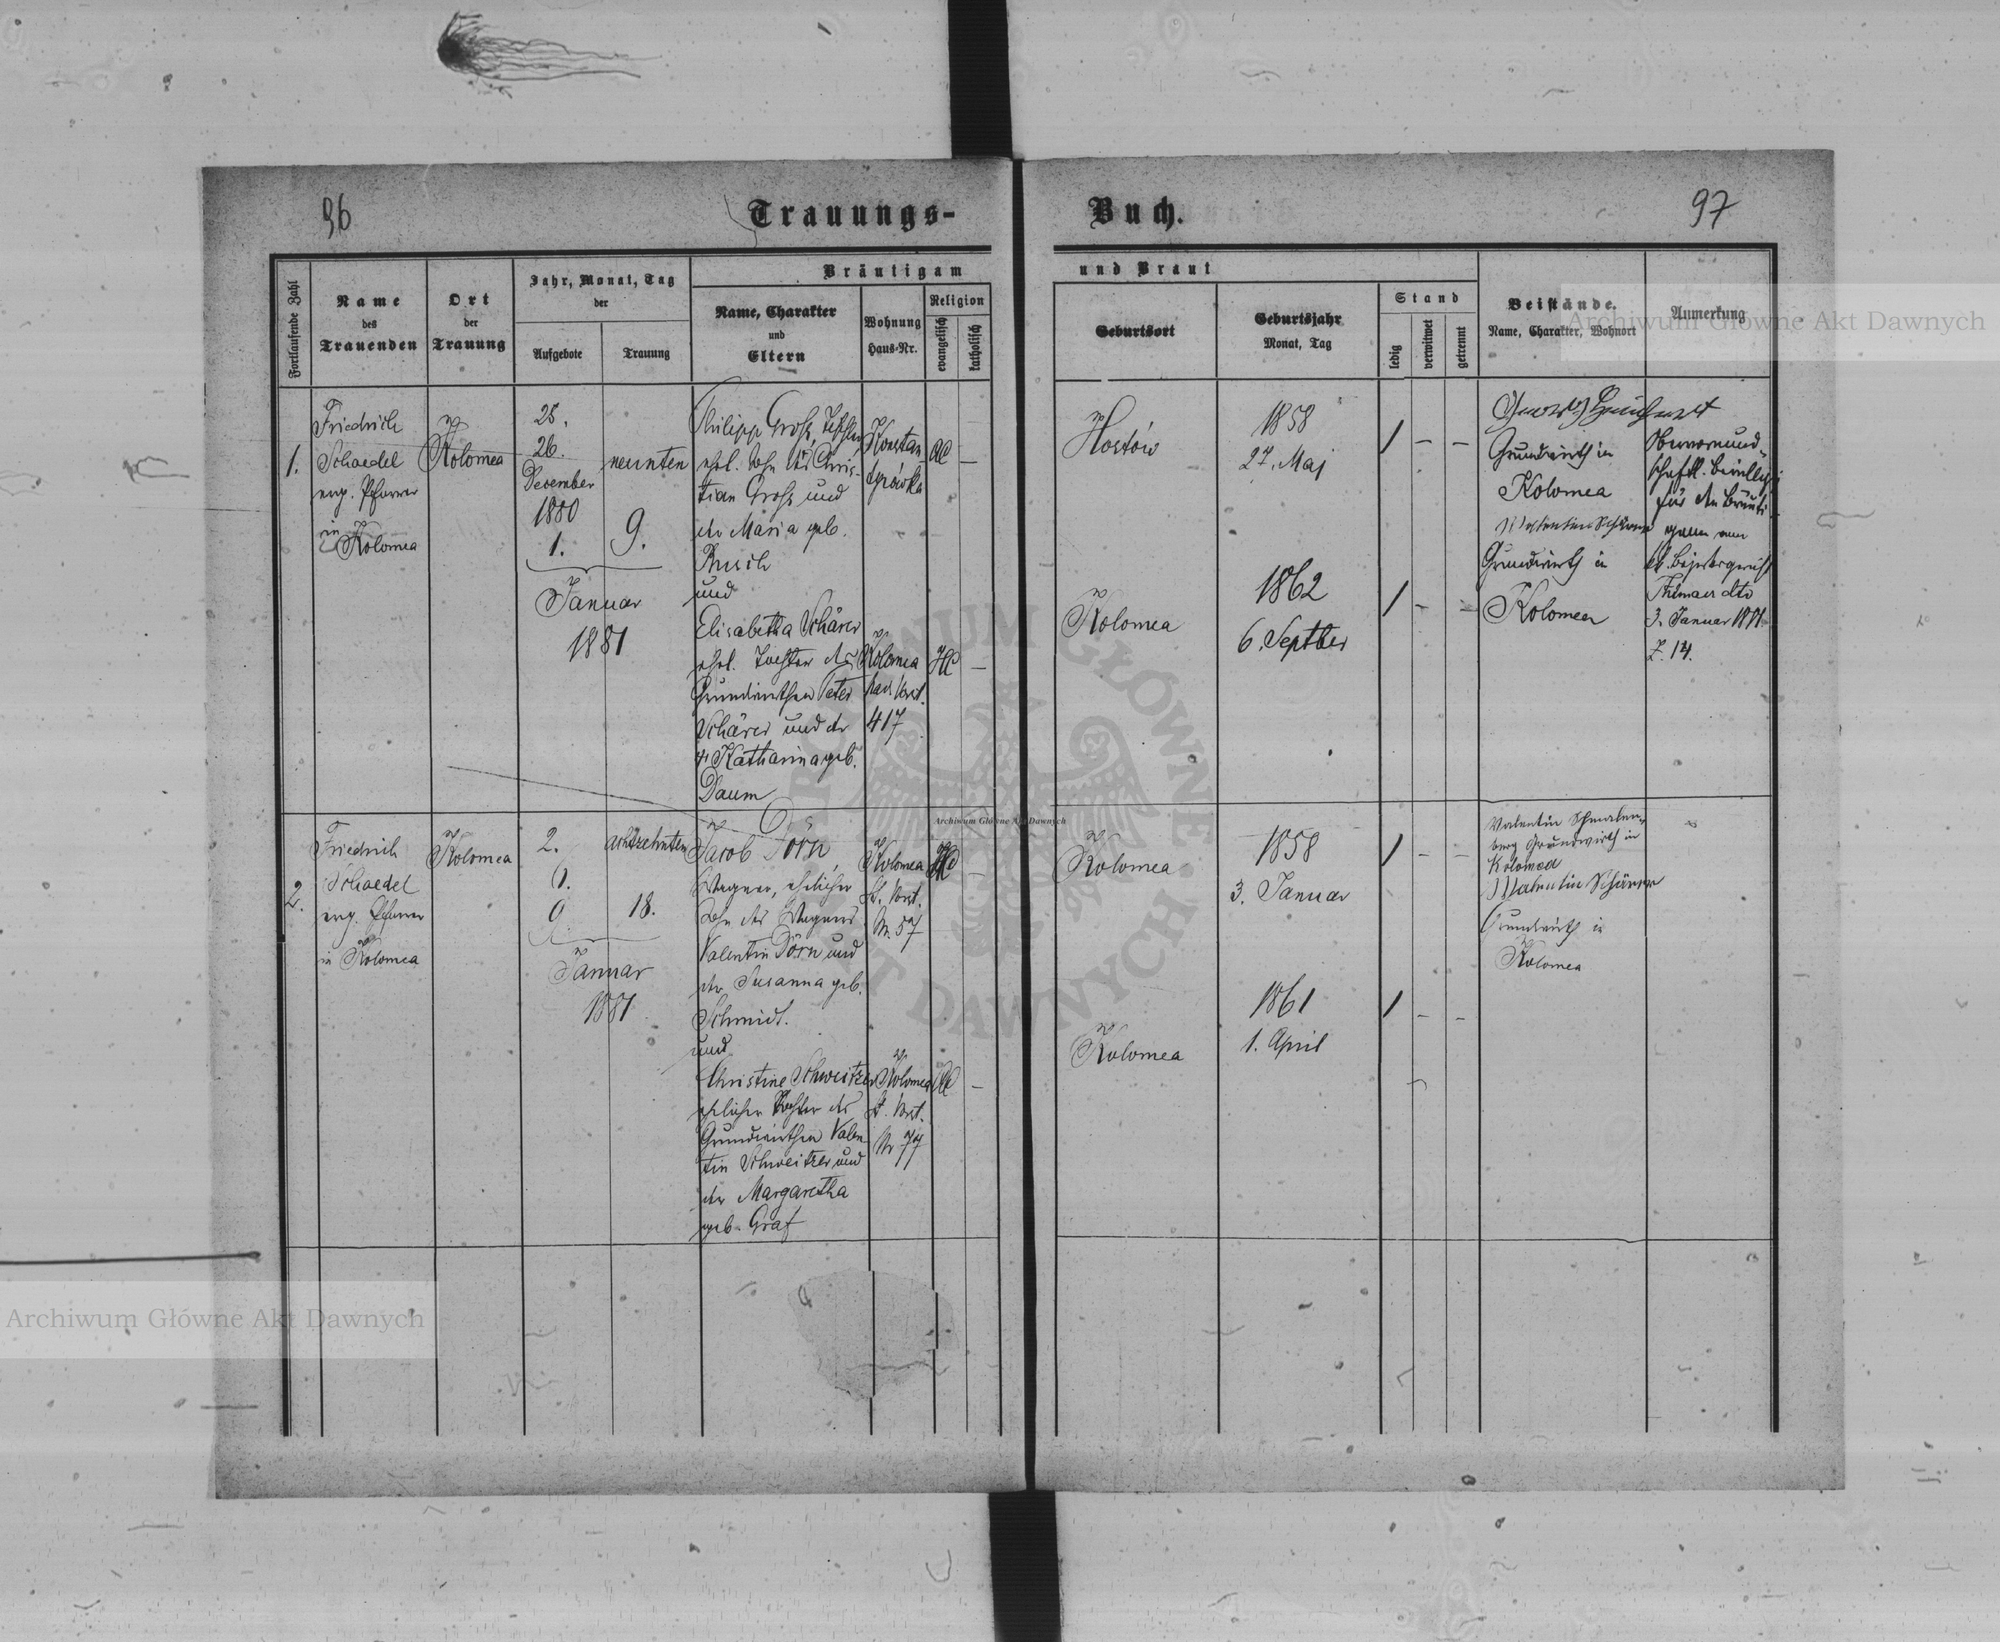 96
Trauungs-
Buch.
97
Bräutigam
und Braut
Fortlaufende Zahl
Name
des
Trauenden
Ort
der
Trauung
Jahr, Monat, Tag
der
Aufgebote
Trauung
Name, Charakter
und
Eltern
Wohnung
Haus-Nr.
Religion
evangelisch
katholisch
Geburtsort
Geburtsjahr
Monat, Tag
Stand
ledig
verwitwet
getrennt
Beistände,
Name, Charakter, Wohnort
Anmerkung
1.
Friedrich
Schaedel
evg. Pfarrer
in
Kolomea
Kolomea
25.
26.
Dezember
1880
1.
Januar
1881
neunten
9.
Philipp Groß,
ehel. Sohn des Chris-
tian Groß und
der Maria geb.
und
Elisabetha Schärer
ehel. Tochter des
Grundwirthen Peter
Schärer und der
Katharina geb.
Daum
Konstan
tynówka
AC
–
Kolomea
417
HC
–
Hostów
1858
27. Maj
/ – –
Kolomea
1862
6. Septber
/ – –
Grundwirth in
Kolomea
Valentin Schärer
Grundwirth in
Kolomea
Obervormund-
schaftl. Bewillig
für den Bräuti
gam vom
kk. Bezirksgericht
3. Januar 1881
Z. 14.
2.
Friedrich
Schaedel
evg. Pfarrer
in Kolomea
Kolomea
2.
6.
9.
Januar
1881
achtzehnten
18.
Jacob Dörn,
Wagner, ehelicher
Sohn des Wagners
Valentin Dörn und
der Susanna geb.
Schmidt.
und
Christine Schweitzer
ehelicher Tochter des
Grundwirthen Valen
tin Schweitzer und
der Margaretha
geb. Graf
Kolomea
Nr. 57
HC
–
Kolomea
Nr 77
–
Kolomea
1858
3. Januar
/ – –
Kolomea
1861
1. April
/ – –
Valentin Schmalen-
berg Grundwirth in
Kolomea
Valentin Schärer
Grundwirth in
Kolomea
Archiwum Główne Akt Dawnych
Archiwum Główne Akt Dawnych
Archiwum Główne Akt Dawnych